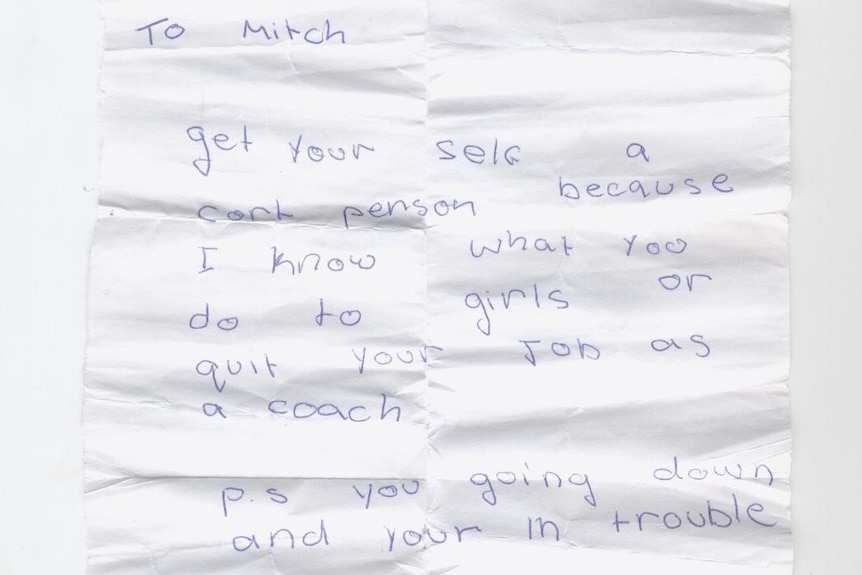 To Mitch
get your selc a
cort person because
I know what yoo
do to girls or
quit your Job as
a coach
p.s you going down
and your in trouble